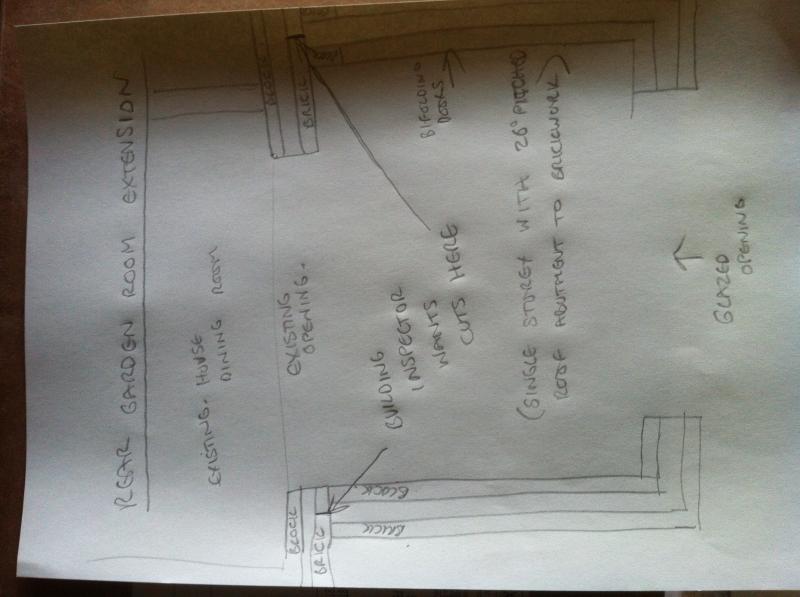 REAR GARDEN ROOM EXTENSION
EXISTING. HOUSE
DINING ROOM
EXISTING
OPENING.
BLOCK
BRICK
BLOCK
BRICK
BLOCK
BRICK
BLOCK
BRICK
BUILDING
INSPECTOR
WANTS
CUTS HERE
BIFOLDING
DOORS
(SINGLE STOREY WITH 26° PITCHED
ROOF ABUTMENT TO BRICKWORK)
GLAZED
OPENING